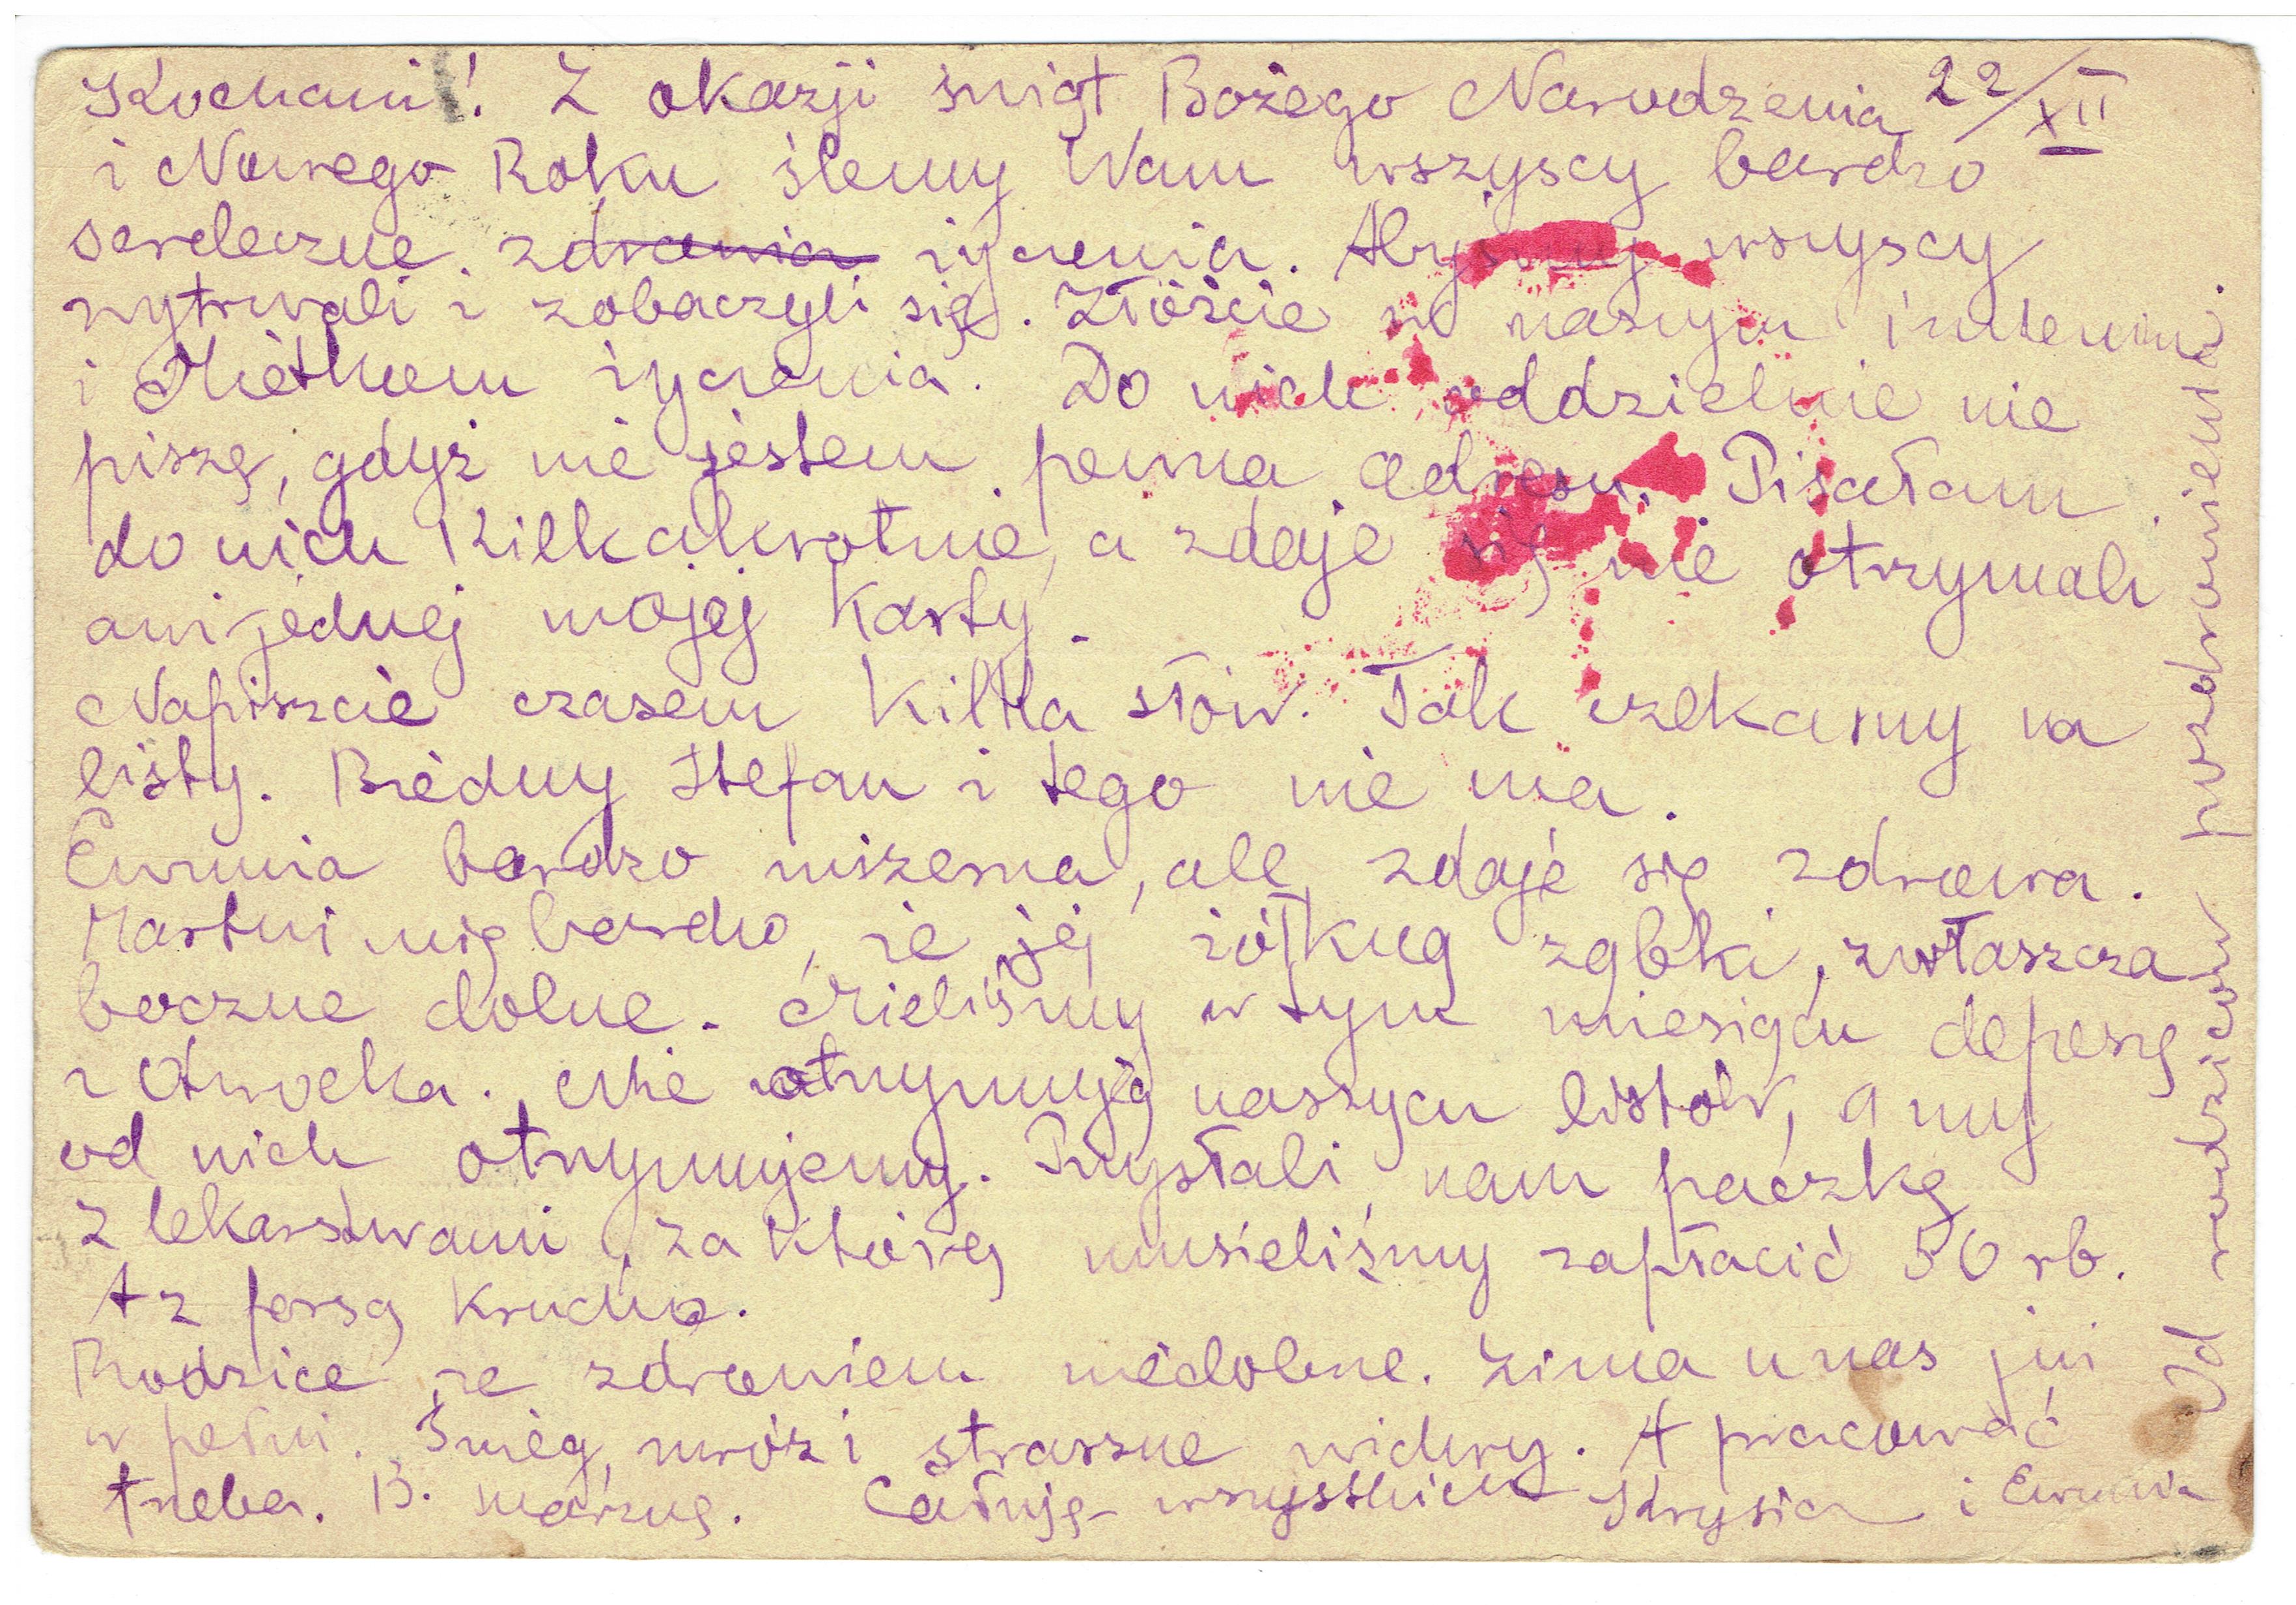 Kochani! Z okazji świąt Bożego Narodzenia 22/XII
i Nowego Roku ślemy Wam wszyscy bardzo
serdeczne zdrowia życzenia. Abyśmy wszyscy
wytrwali i zobaczyli się. Złóżcie w naszym imieniu
i życzenia. Do nich oddzielnie nie
piszę, gdyż nie jestem pewna adresu. Pisałam
do nich kilkakrotnie, a zdaje się nie otrzymali
ani jednej mojej karty.
Napiszcie czasem kilka słów. Tak czekamy na
listy. Biedny Stefan i tego nie ma.
Ewunia bardzo mizerna, ale zdaje się zdrowa.
Martwi mię bardzo, że jej żółkną ząbki, zwłaszcza
boczne dolne. Mieliśmy w tym miesiącu depeszę
z Otwocka. Nie otrzymują naszych listów, a my
od nich otrzymujemy. Przysłali nam paczkę
z lekarstwami, za którą musieliśmy zapłacić 50 rb.
A z forsą krucho.
Rodzice ze zdrowiem niedobrze. Zima u nas już
w pełni. Śnieg, mróz i straszne wichry. A pracować
trzeba. B. marznę. Całuję wszystkich Krysia i Ewunia
Od rodziców pozdrowienia.